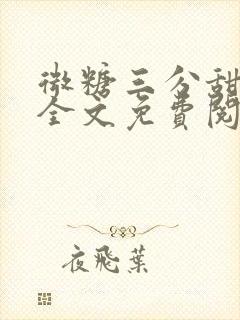 微糖三分甜
全文免費閱
夜飛葉